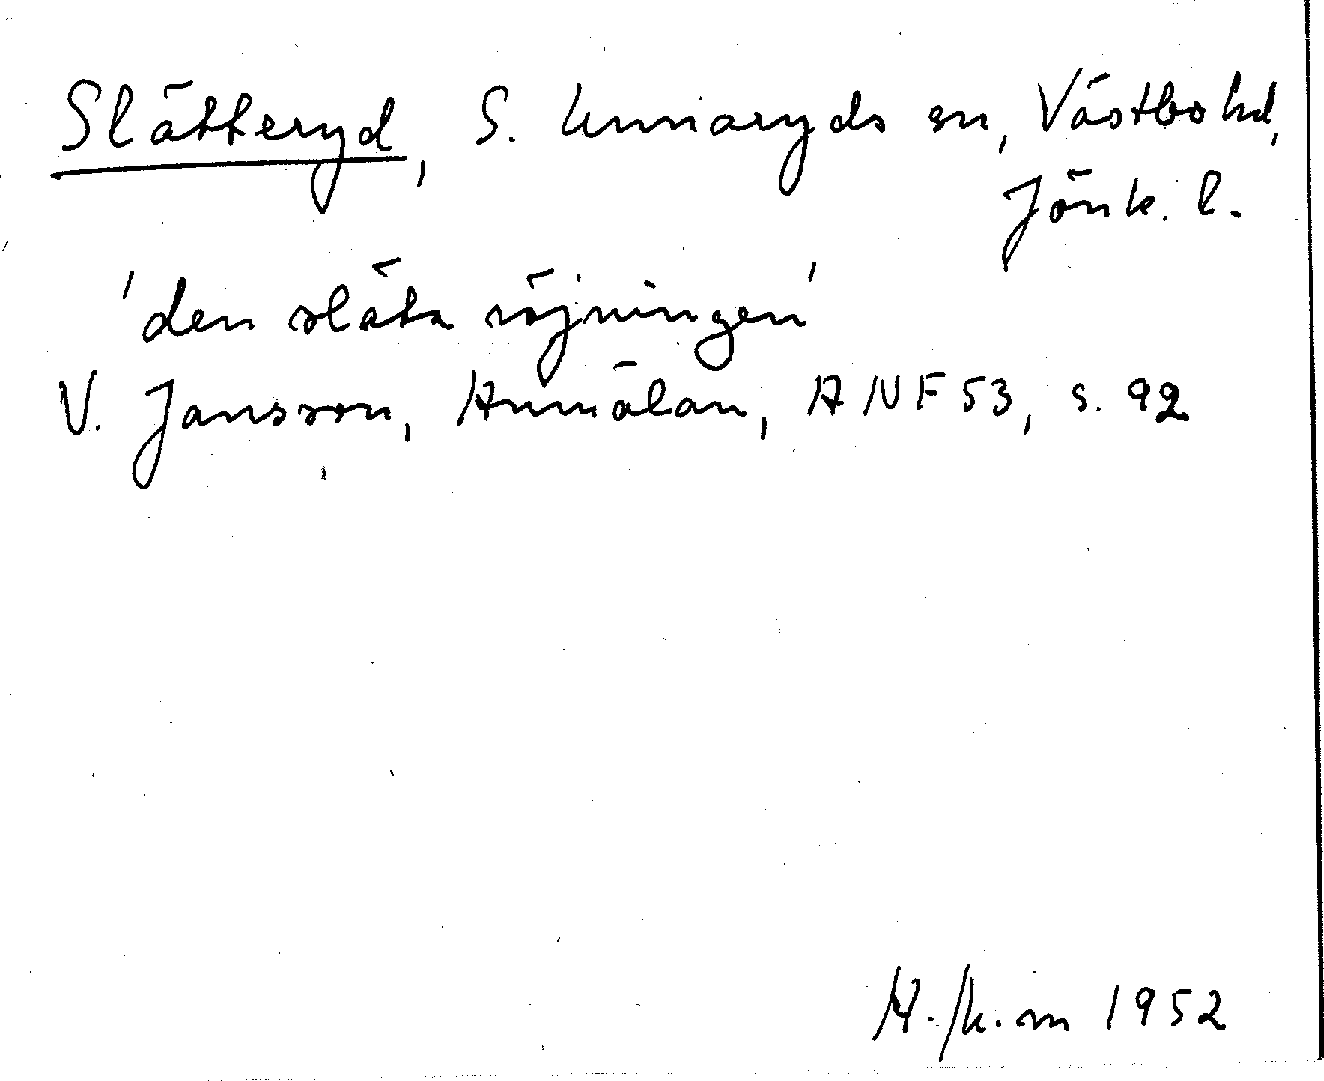 Slätteryd, S. Unnaryds sn, Västbo hd,
Jönk. l.
'den släta röjningen'
V. Jansson, Anmälan, ANF 53, s. 92
1952